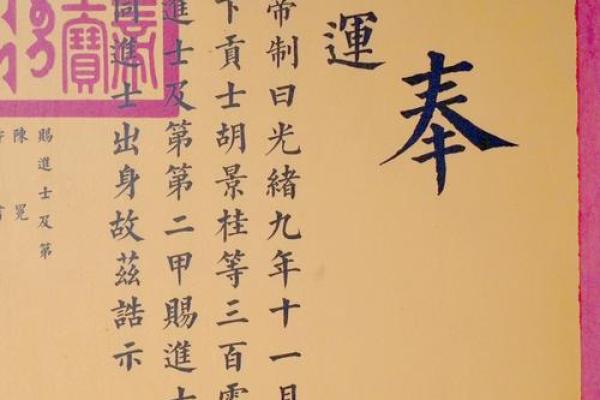 奉
運
帝制曰光緒九年十一月
下貢士胡景桂等三百零
進士及第第二甲賜進士
同進士出身故茲誥示
賜進士及第
陳冕
寶